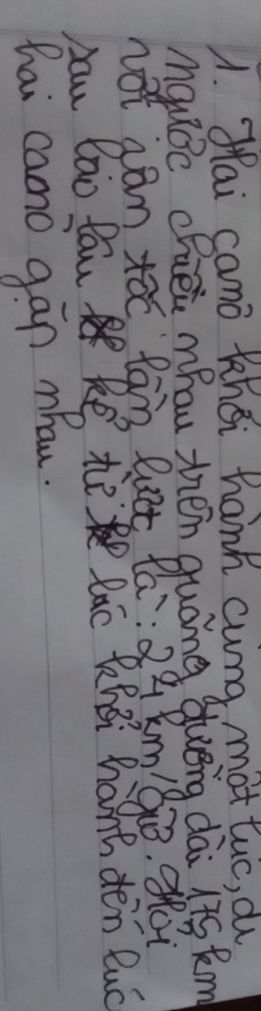 1. Hai canô khởi hành cùng một lúc, đi
ngược chiều nhau trên quãng đường dài 175 km
với vận tốc lần lượt là: 24 km/giờ. Hỏi
sau bao lâu kể từ lúc khởi hành đến lúc
hai canô gặp nhau.